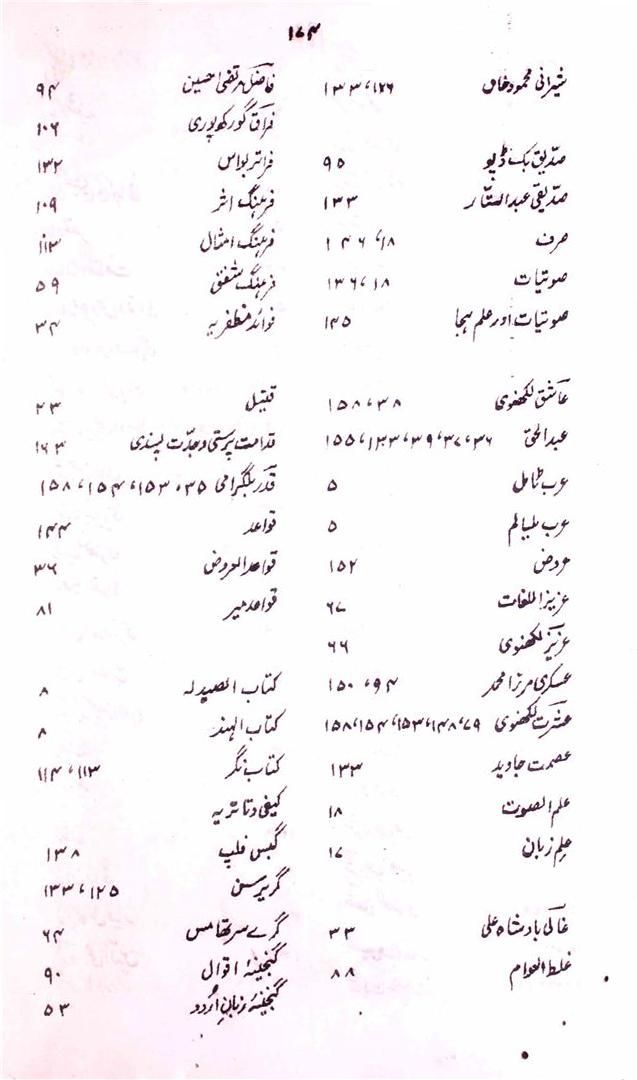 ۱۷۴
شیرانی محمود خاں ۱۲۶، ۱۳۳
صدیق بک ڈپو ۹۵
صدیقی عبدالستار ۱۳۳
صرف ۱۸، ۱۴۶
صوتیات ۱۸، ۱۳۶
صوتیات اور علم ہجا ۱۴۵
عاشق لکھنوی ۳۸، ۱۵۸
عبدالحق ۳۶، ۳۷، ۳۹، ۱۲۳، ۱۵۵
عرب ٹامل ۵
عرب ملیالم ۵
عروض ۱۵۲
عزیز اللغات ۶۷
عزیز لکھنوی ۶۶
عسکری مرزا محمد ۹۴، ۱۵۰
عشرت لکھنوی ۷۹، ۱۴۸، ۱۵۳، ۱۵۴، ۱۵۸
عصمت جاوید ۱۳۳
علم الصوت ۱۸
علم زبان ۱۷
غالی بادشاہ علی ۳۳
غلط العوام ۸۸
فاضل مرتضیٰ حسین ۹۴
فراق گورکھپوری ۱۰۶
فرانز بواس ۱۳۲
فرہنگ اثر ۱۰۹
فرہنگ امثال ۱۱۳
فرہنگ شفق ۵۹
فوائد مظفریہ ۳۴
قتیل ۲۳
قدامت پرستی و جدت پسندی ۱۶۳
قدر بلگرامی ۳۵، ۱۵۳، ۱۵۴، ۱۵۸
قواعد ۱۴۴
قواعد العروض ۳۶
قواعد میر ۸۱
کتاب الصیدلہ ۸
کتاب الہند ۸
کتاب نگر ۱۱۳، ۱۱۴
کیفی دتاتریہ
گبس فلپ ۱۳۸
گریرسن ۱۲۵، ۱۳۳
گرے سر تھامس ۶۴
گنجینۂ اقوال ۹۰
گنجینۂ زبان اُردو ۵۳